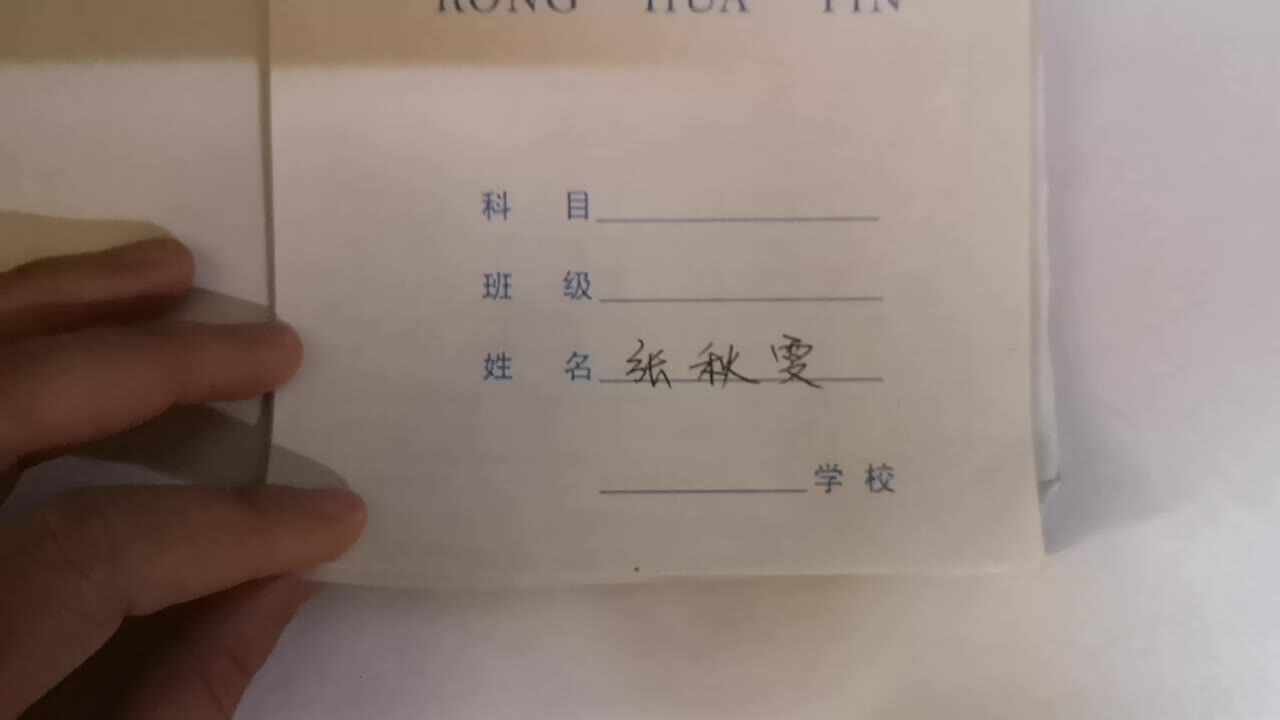 RONG HUA PIN
科 目
班 级
姓 名 张秋雯
学 校